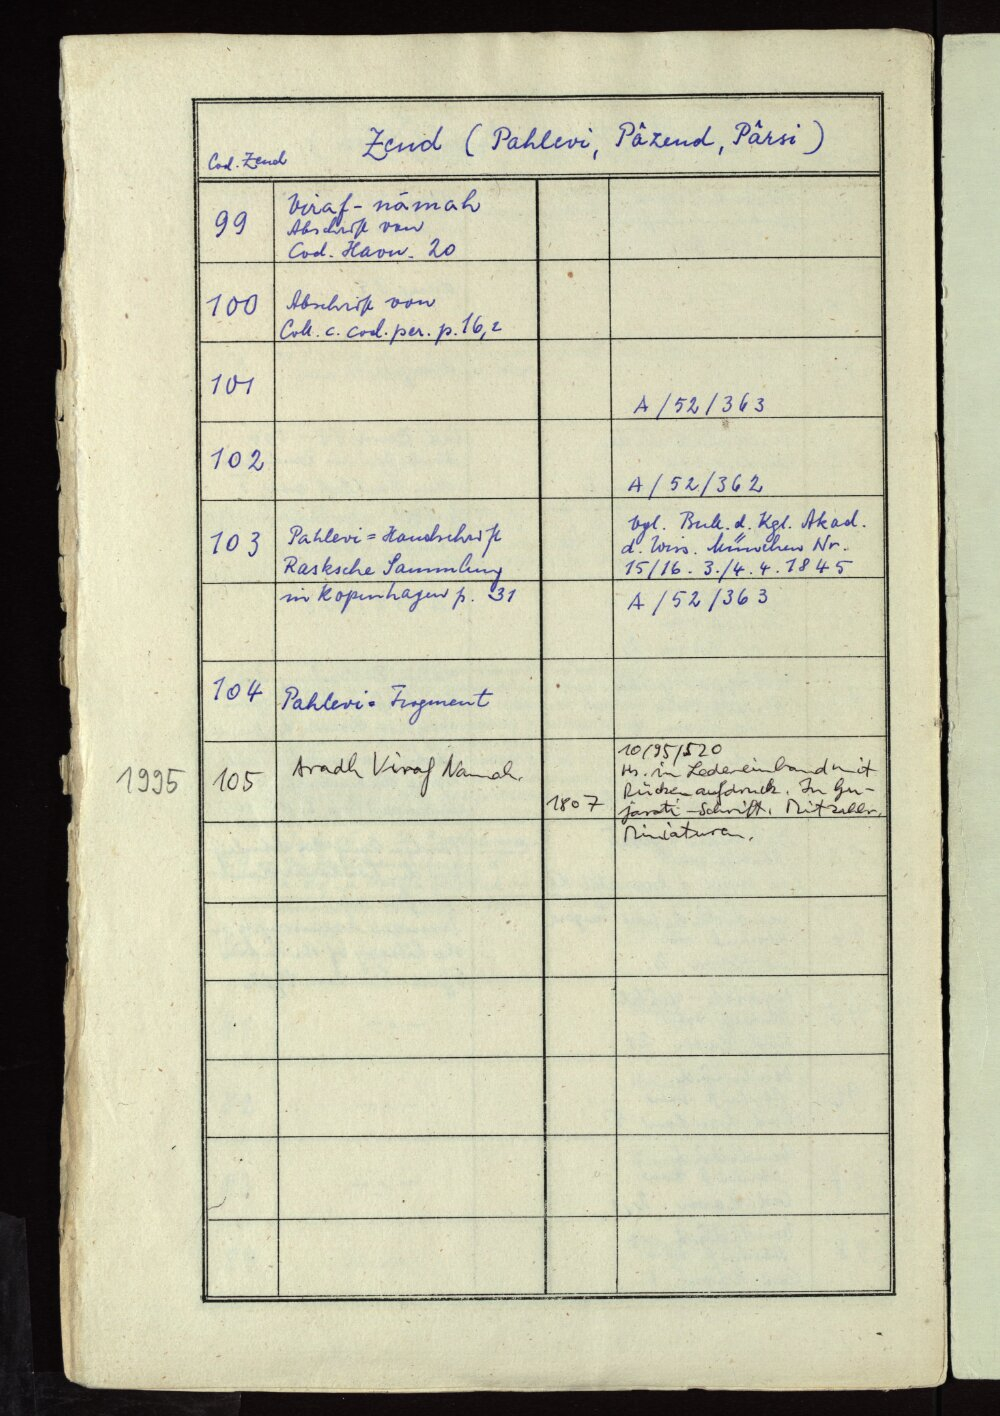 Zend (Pahlevi, Pâzend, Pârsi)
Cod. Zend
99
Viraf-nāmah
Abschrift von
Cod. Havn. 20
100
Abschrift von
Coll. c. cod. per. p. 16,2
101
A/52/363
102
A/52/362
103
Pahlevi=Handschrift
Rasksche Sammlung
in Kopenhagen p. 31
vgl. Bull. d. Kgl. Akad.
d. Wiss. München Nr.
15/16. 3./4. 4. 1845
A/52/363
104
Pahlevi=Fragment
1995
105
Aradh Viraf Namah.
1807
10/95/520
Hs. in Ledereinband mit
Rückenaufdruck. In Gu-
jarati-Schrift. Mit zahlr.
Miniaturen.